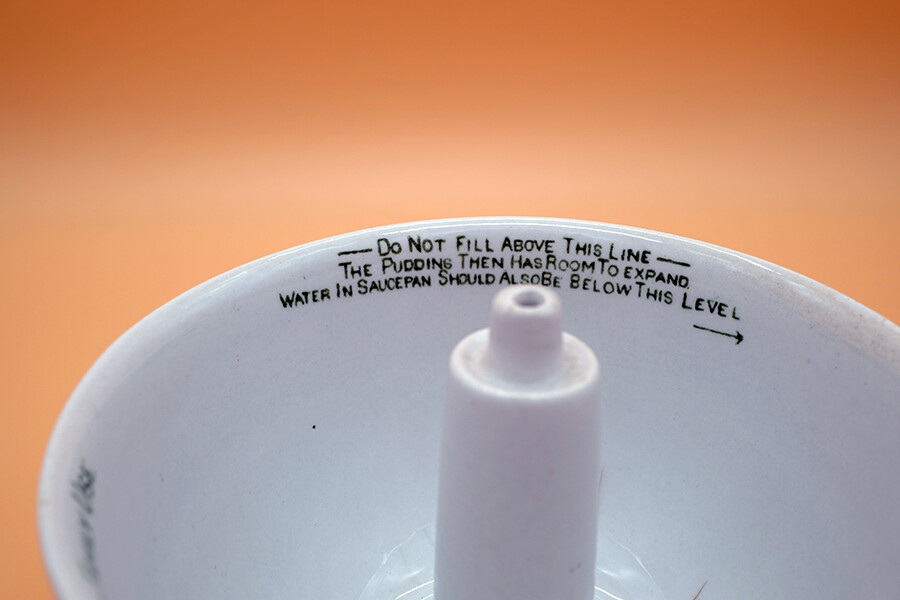 — DO NOT FILL ABOVE THIS LINE —
THE PUDDING THEN HAS ROOM TO EXPAND.
WATER IN SAUCEPAN SHOULD ALSO BE BELOW THIS LEVEL
→
USE